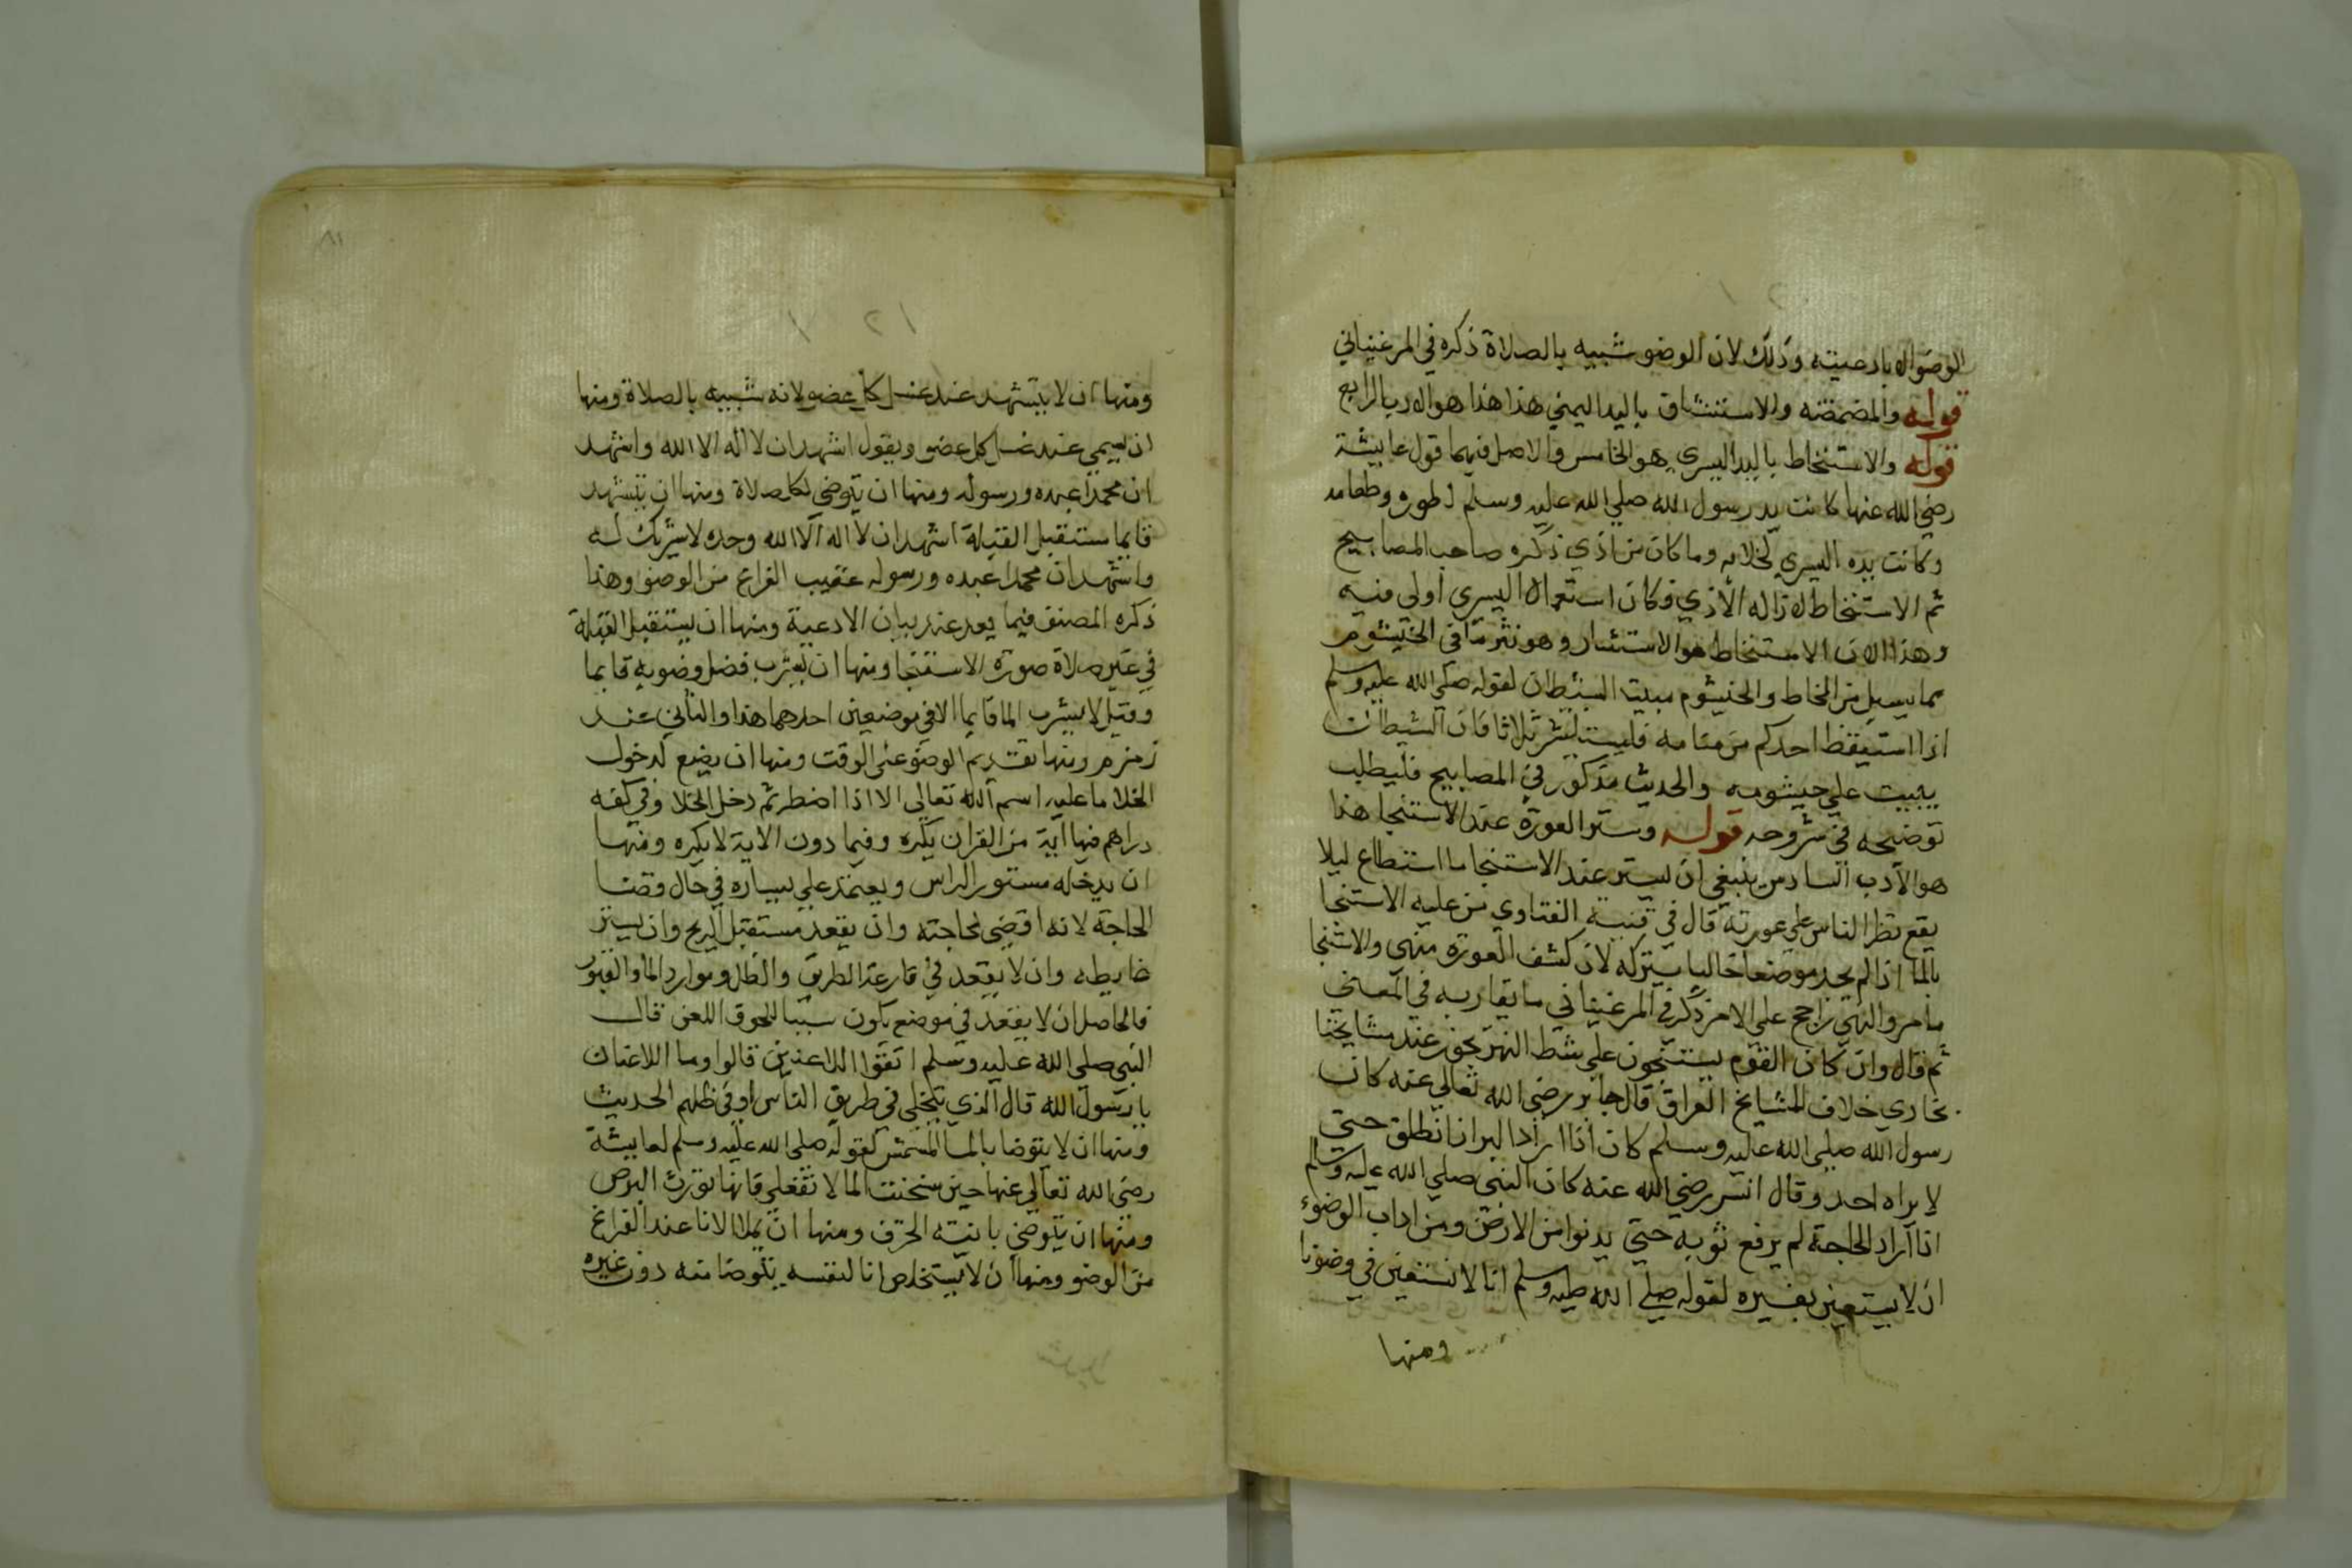 الوضوء الا بادعيته وذلك لان الوضو شبيه بالصلاة ذكره في المرغيناني
قوله والمضمضة والاستنشاق باليد اليمني هذا هذا هو الادب الرابع
قوله والاستنخاط باليد اليسري هو الخامس والاصل فيهما قول عايشة
رضي الله عنها كانت يد رسول الله صلي الله عليه وسلم لطهوره وطعامه
وكانت يده اليسري لخلايه وما كان من اذي ذكره صاحب المصابيح
ثم الاستنخاط ازاله الاذي فكان استعمال اليسري اولي فيه
وهذا لان الاستنخاط هو الاستنثار وهو نثر ما في الخيشوم
مما يسيل من المخاط والخيشوم مبيت الشيطان لقوله صلي الله عليه وسلم
اذا استيقظ احدكم من منامه فليستنثر ثلاثا فان الشيطان
يبيت علي خيشومه والحديث مذكور في المصابيح فليطلب
توضيحه في شروحه قوله وستر العورة عند الاستنجا هذا
هو الادب السادس ينبغي ان يستر عند الاستنجا ما استطاع ليلا
يقع نظر الناس علي عورته قال في قنية الفتاوي من عليه الاستنجا
بالما اذا لم يجد موضعا خاليا يتركه لان كشف العورة منهي والاستنجا
مامر والنهي راجح علي الامر ذكر في المرغيناني ما يقاربه في المعني
ثم قال وان كان القوم يستنجون علي شط النهر يجوز عند مشايخنا
بخاري خلاف المشايخ العراق قال جابر رضي الله تعالي عنه كان
رسول الله صلي الله عليه وسلم كان اذا اراد البراز انطلق حتي
لا يراه احد وقال انس رضي الله عنه كان النبي صلي الله عليه وسلم
اذا اراد الحاجة لم يرفع ثوبه حتي يدنوا من الارض ومن اداب الوضوء
ان لا يستعين بغيره لقوله صلي الله عليه وسلم انا لا نستعين في وضونا
ومنها
ومنها ان لا يتشهد عند غسل كل عضو لانه شبيه بالصلاة ومنها
ان يسمي عند غسل كل عضو ويقول اشهد ان لا اله الا الله واشهد
ان محمدا عبده ورسوله ومنها ان يتوضي لكل صلاة ومنها ان يتشهد
قايما مستقبل القبلة اشهد ان لا اله الا الله وحده لا شريك له
واشهد ان محمدا عبده ورسوله عقيب الفراغ من الوضو وهذا
ذكره المصنف فيما بعد عند بيان الادعية ومنها ان يستقبل القبلة
في غير صلاة صورة الاستنجا ومنها ان يشرب فضل وضويه قايما
وقيل لا يشرب الما قايما الا في موضعين احدهما هذا والثاني عند
زمزم ومنها تقديم الوضو علي الوقت ومنها ان يضع لدخول
الخلا ما عليه اسم الله تعالي الا اذا اضطر ثم دخل الخلا وفي كفه
دراهم فيها آية من القران يكره وفيما دون الاية لا يكره ومنها
ان يدخله مستور الراس ويعتمد علي يساره في حال قضا
الحاجة لانه اقضي لحاجته وان يقعد مستقبل الريح وان يستر
حايطه وان لا يقعد في قارعة الطريق والظل وموارد الما والقبور
فالحاصل ان لا يقعد في موضع يكون سببا للحوق اللعن قال
النبي صلي الله عليه وسلم اتقوا اللاعنين قالوا وما اللاعنان
يا رسول الله قال الذي يتخلي في طريق الناس او في ظلهم الحديث
ومنها ان لا يتوضا بالما المشمش لقوله صلي الله عليه وسلم لعايشة
رضي الله تعالي عنها حين سخنت الما لا تفعلي فانها تورث البرص
ومنها ان يتوضي بانية الخزف ومنها ان يملا الانا عند الفراغ
من الوضو ومنها ان لا يستخلص انا لنفسه يتوضا منه دون غيره